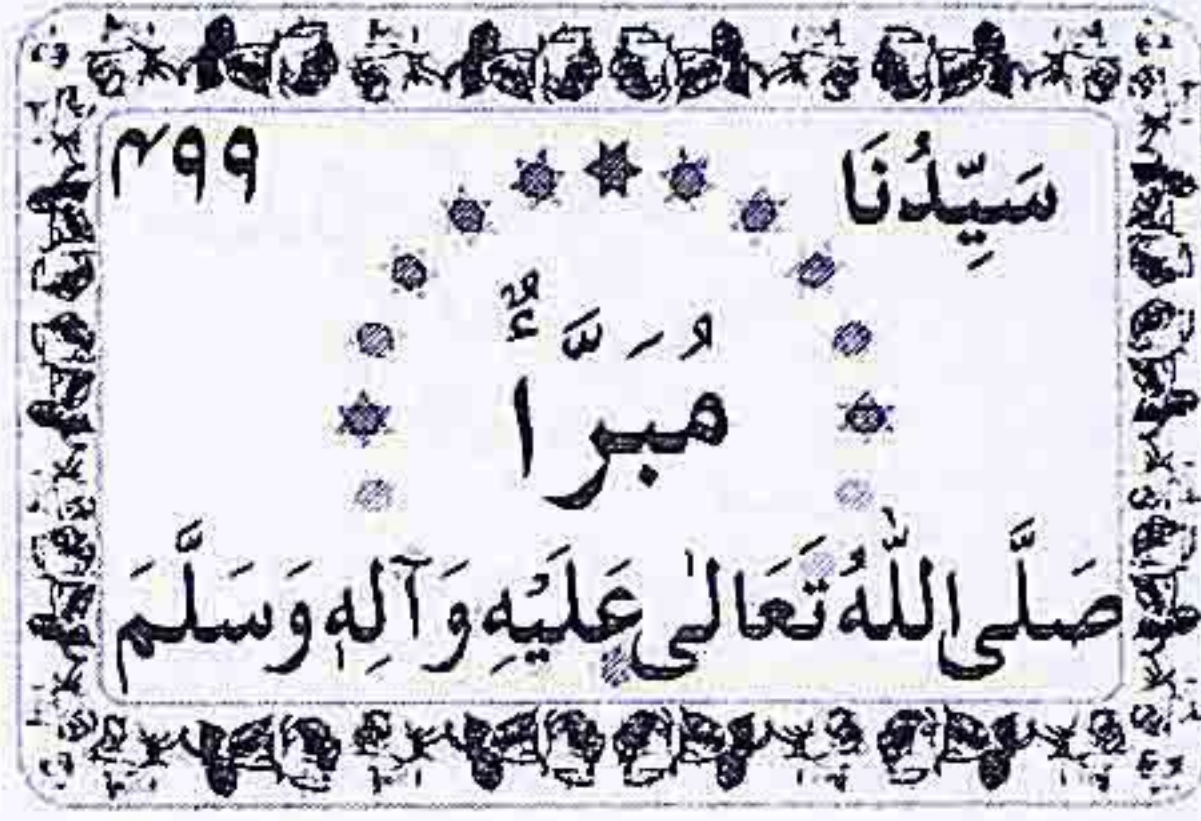 سَيِّدُنَا ۴۹۹
مُبَرَّأٌ
صَلَّى اللّٰهُ تَعَالٰى عَلَيْهِ وَآلِهٖ وَسَلَّمَ